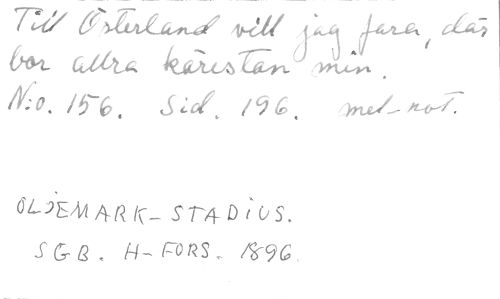 Till Österland vill jag fara, där
bor allra kärestan min.
N:o. 156. Sid. 196. mel-not.
OLJEMARK-STADIUS.
SGB. H-FORS. 1896.